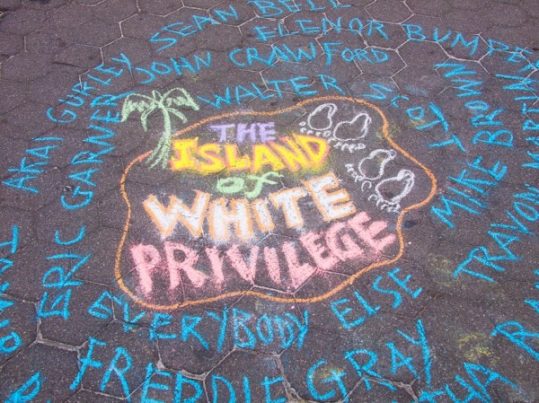 THE
ISLAND
of
WHITE
PRIVILEGE
EVERYBODY ELSE
SEAN BELL
ELENOR BUMPE
AKAI GURLEY
JOHN CRAWFORD
ERIC GARNER
WALTER SCOTT
MIKE BROWN
TRAYVON
FREDDIE GRAY